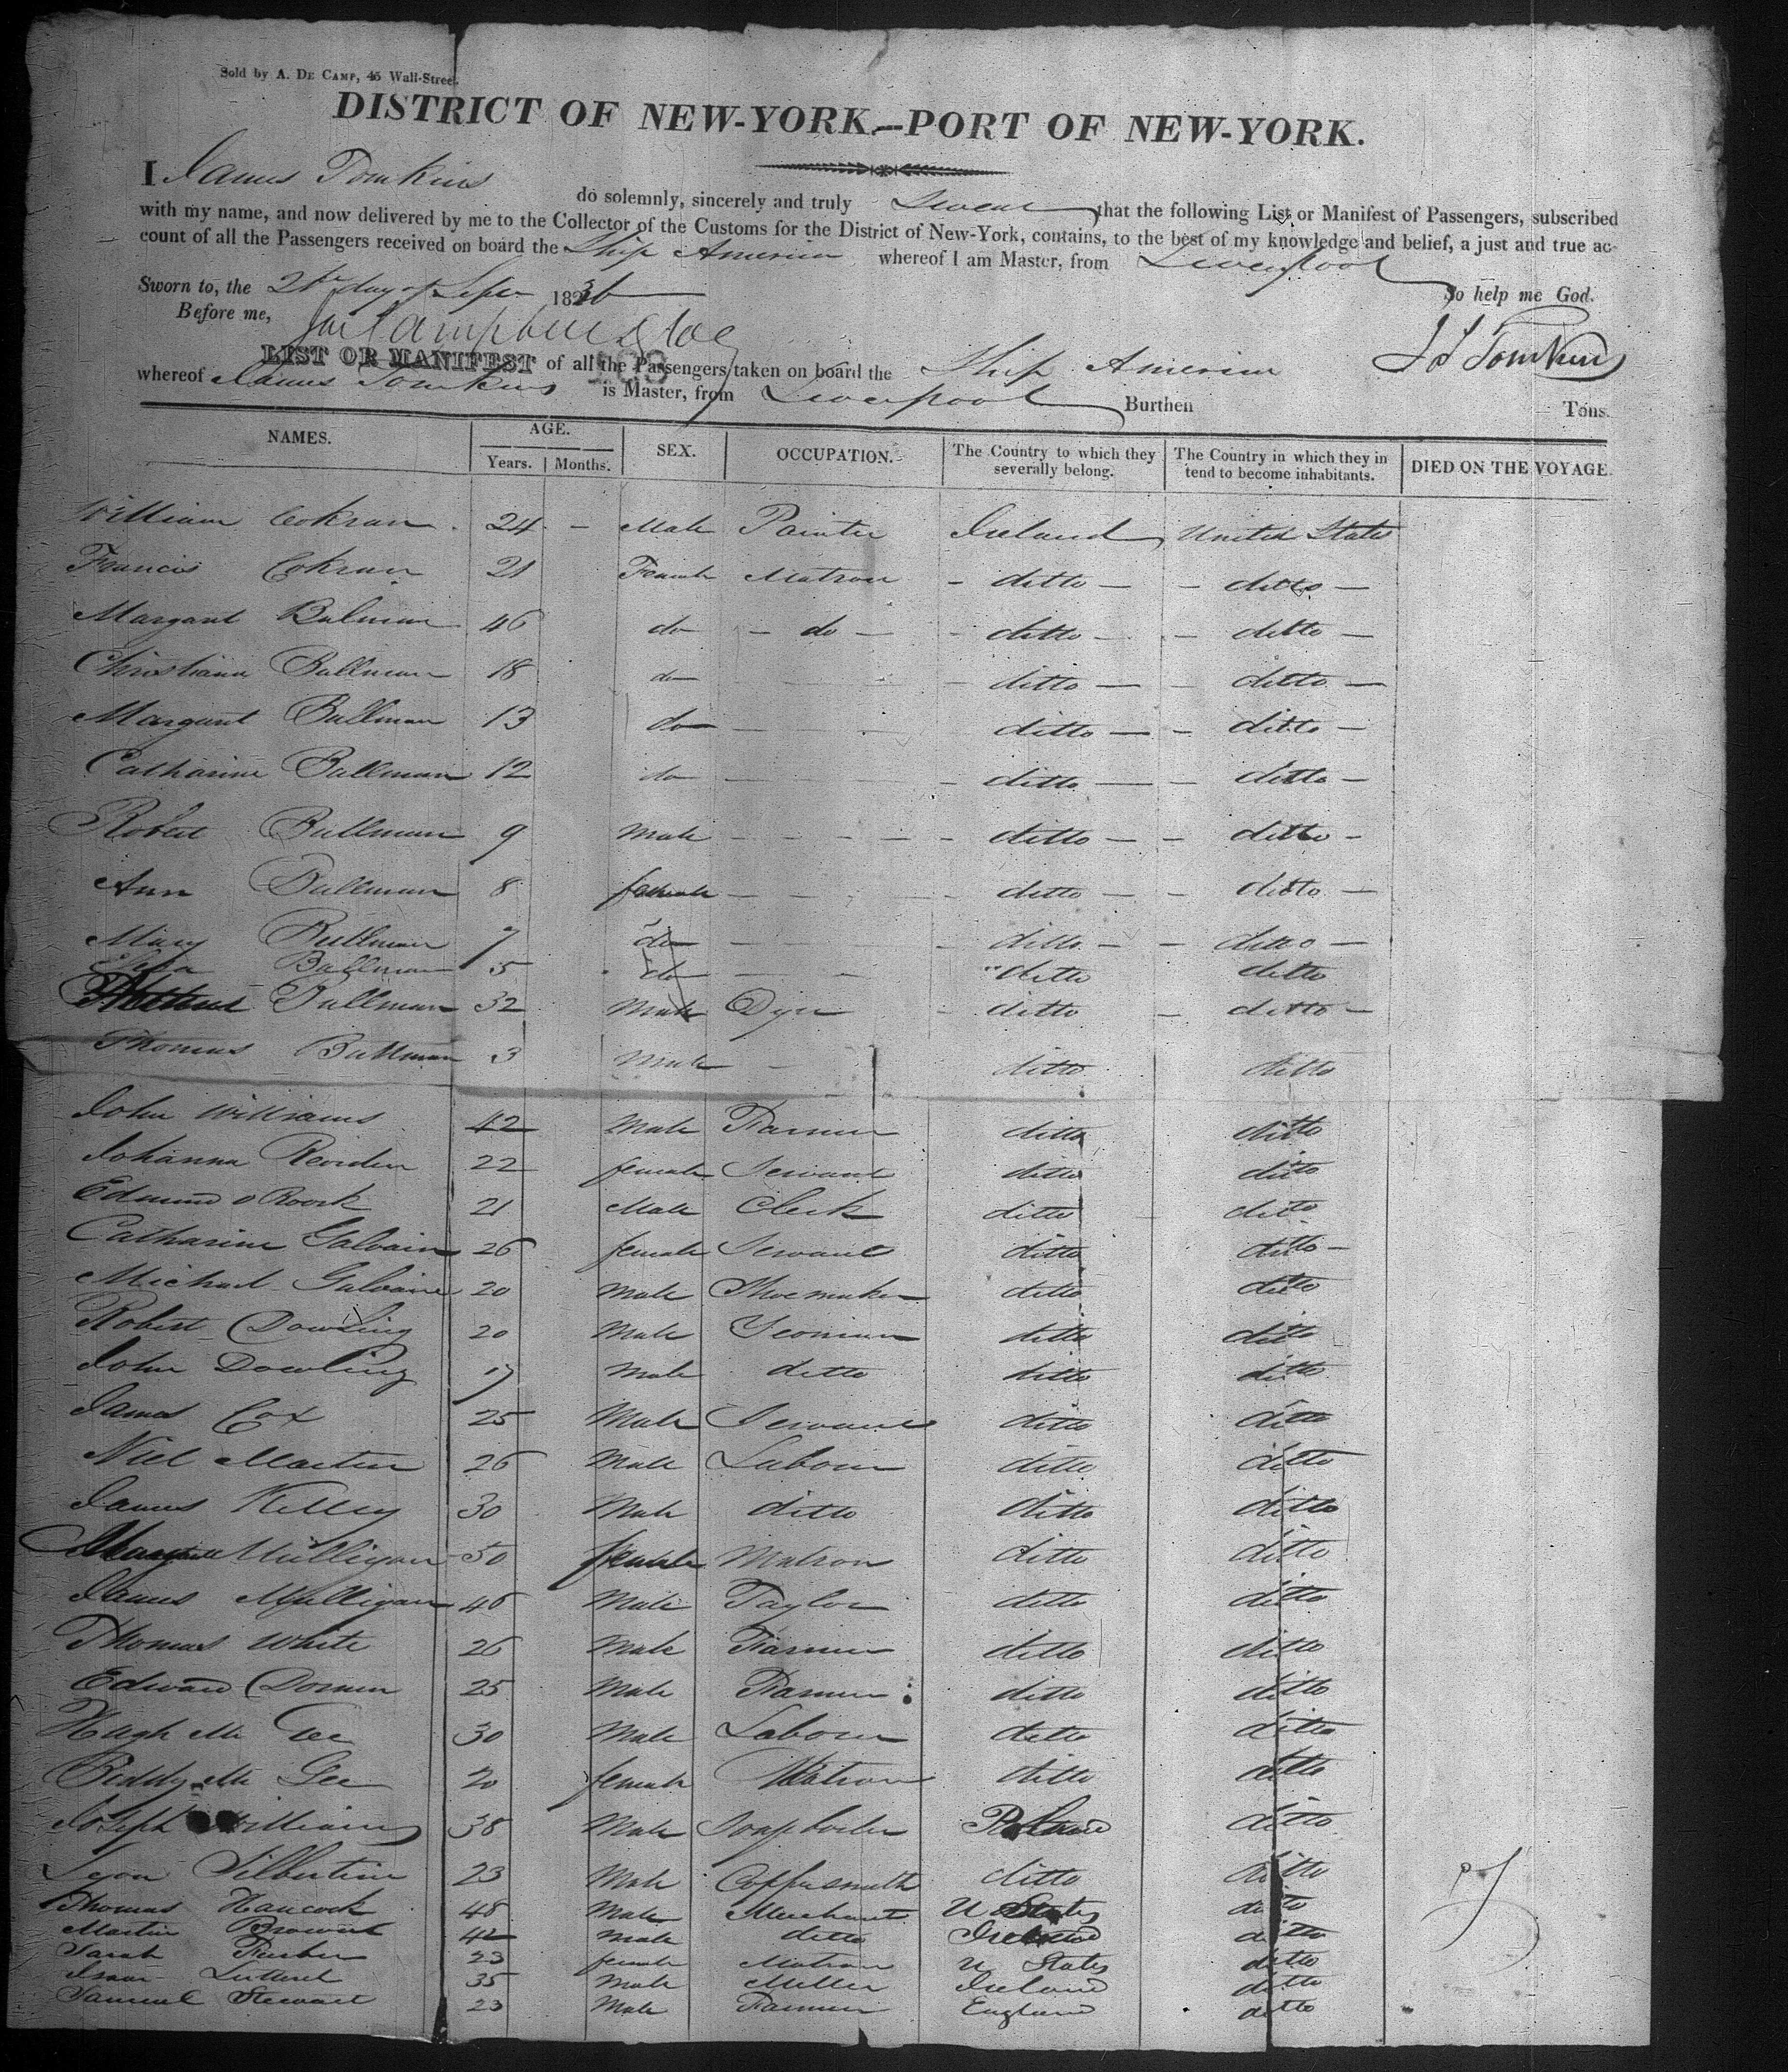 Sold by A. DE CAMP, 45 Wall-Street.
DISTRICT OF NEW-YORK.—PORT OF NEW-YORK.
I James Tomkins do solemnly, sincerely and truly Swear that the following List or Manifest of Passengers, subscribed
with my name, and now delivered by me to the Collector of the Customs for the District of New-York, contains, to the best of my knowledge and belief, a just and true ac-
count of all the Passengers received on board the Ship America whereof I am Master, from Liverpool
Sworn to, the day of Sepr 18 So help me God.
Before me, J S Tomkins
LIST OR MANIFEST of all the Passengers taken on board the Ship America
whereof James Tomkins is Master, from Liverpool Burthen Tons.
NAMES. AGE. Years. Months. SEX. OCCUPATION. The Country to which they severally belong. The Country in which they in tend to become inhabitants. DIED ON THE VOYAGE.
William Cokran 24 - Male Painter Ireland United States
Francis Cokran 21 Female Matron - ditto - - ditto -
Margaret Bulman 46 do - do - - ditto - - ditto -
Christiana Bullman 18 do - ditto - - ditto -
Margaret Bullman 13 do - ditto - - ditto -
Catharine Bullman 12 do - ditto - - ditto -
Robert Bullman 9 Male - ditto - - ditto -
Ann Bullman 8 female - ditto - - ditto -
Mary Bullman 7 do - ditto - - ditto -
Bullman 5 do ditto ditto
Bullman 32 Male Dyer ditto - ditto -
Thomas Bullman 3 Male - ditto ditto
John Williams 42 Male Farmer ditto ditto
Johanna Reirden 22 female Servant ditto ditto
Edmund o Roork 21 Male Clerk ditto ditto
Catharine Galvain 26 female Servant ditto ditto -
Michael Galvaine 20 Male Shoemaker ditto ditto
Robert Dowling 20 Male Yeoman ditto ditto
John Dowling 17 Male ditto ditto ditto
James Cox 25 Male Servant ditto ditto
Niel Martin 26 Male Labour ditto ditto
James Kelley 30 Male ditto ditto ditto
Mulligan 50 female Matron ditto ditto
James Mulligan 46 Male Taylor ditto ditto
Thomas White 26 Male Farmer ditto ditto
Edward Dornen 25 Male Farmer ditto ditto
Hugh Mc Gee 30 Male Labour ditto ditto
Biddy Mc Gee 20 female Matron ditto ditto
Joseph Williams 38 Male Soap boiler Poland ditto
Silbertine 23 Male Coppersmith ditto ditto
Thomas Hancock 48 Male Merchant U States ditto
Martin 42 Male ditto Ireland ditto
Sarah 23 female Matron U States ditto
Isaac Luttrel 35 Male Miller Ireland ditto
Samuel Stewart 23 Male Farmer England ditto